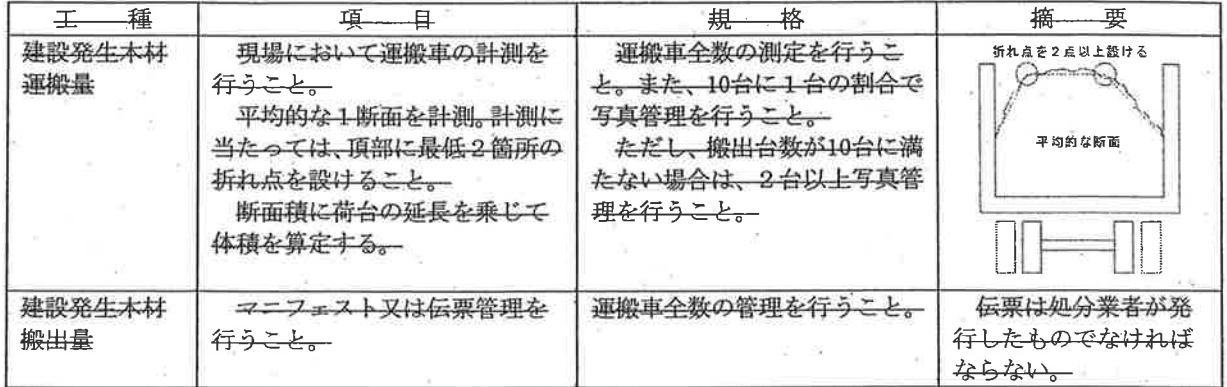 工　種　項　目　規　格　摘　要
建設発生木材
運搬量
現場において運搬車の計測を
行うこと。
平均的な１断面を計測。計測に
当たっては、頂部に最低２箇所の
折れ点を設けること。
断面積に荷台の延長を乗じて
体積を算定する。
運搬車全数の測定を行うこ
と。また、10台に１台の割合で
写真管理を行うこと。
ただし、搬出台数が10台に満
たない場合は、２台以上写真管
理を行うこと。
折れ点を２点以上設ける
平均的な断面
建設発生木材
搬出量
マニフェスト又は伝票管理を
行うこと。
運搬車全数の管理を行うこと。
伝票は処分業者が発
行したものでなければ
ならない。